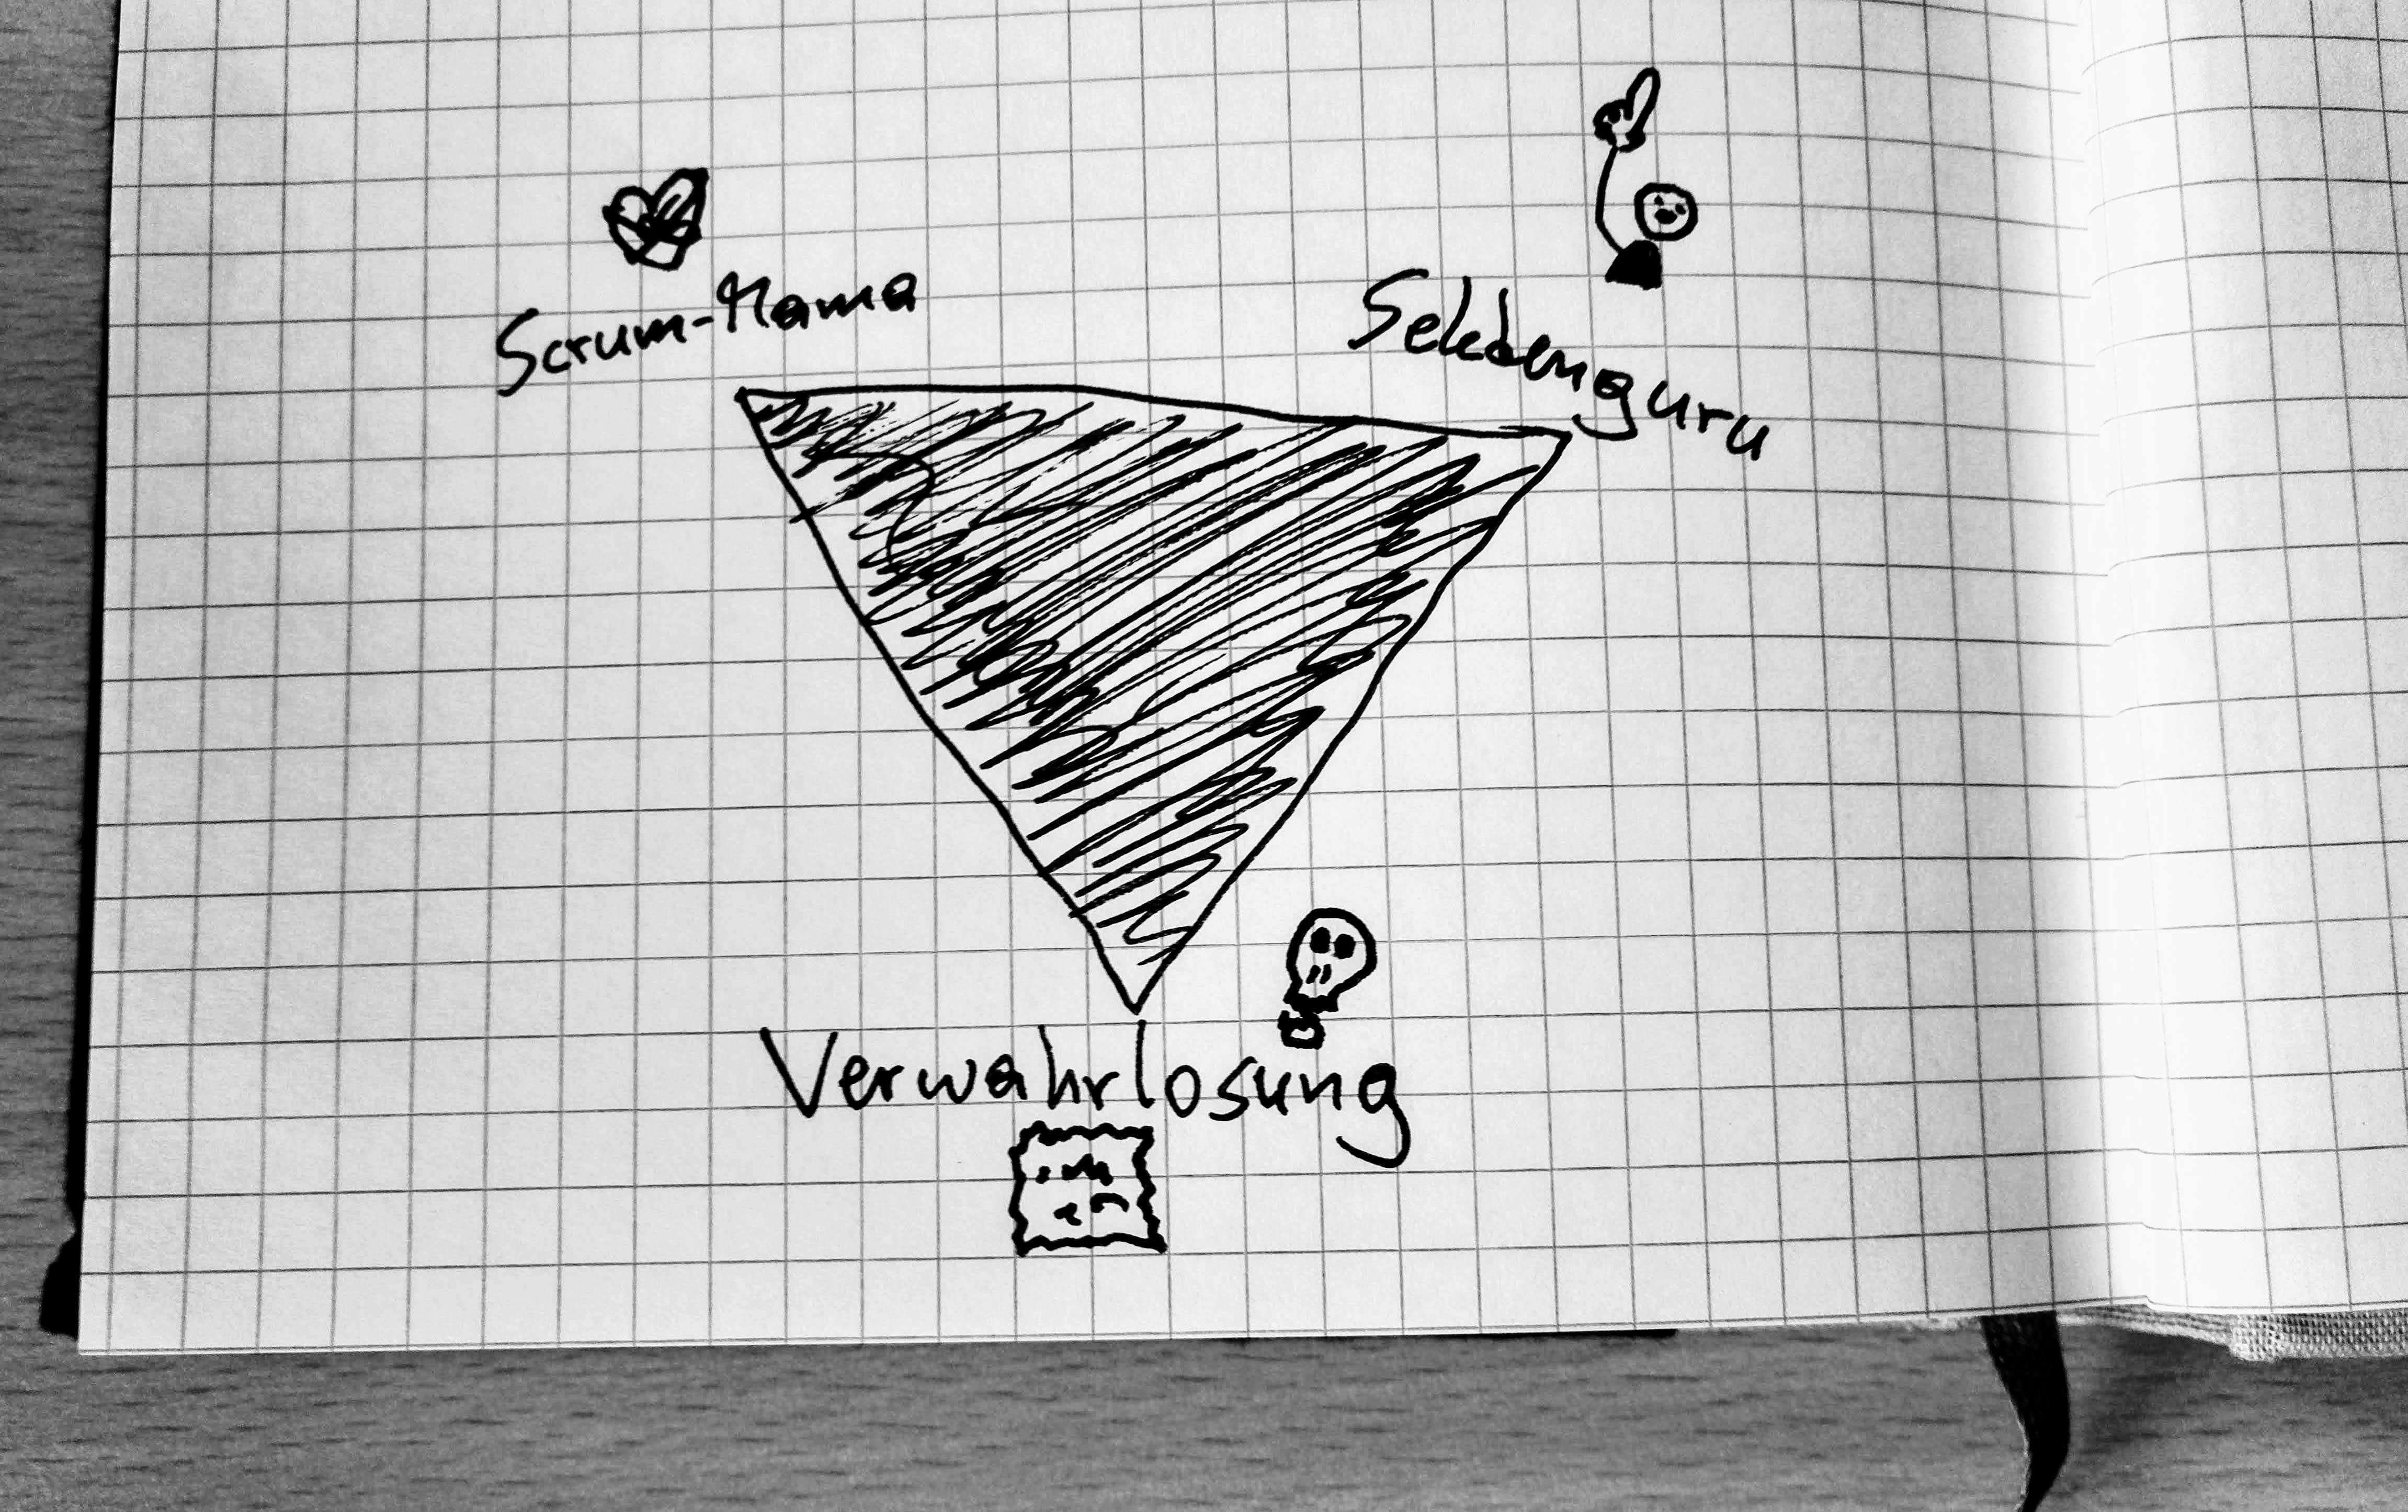 Scrum-Mama
Sektenguru
Verwahrlosung